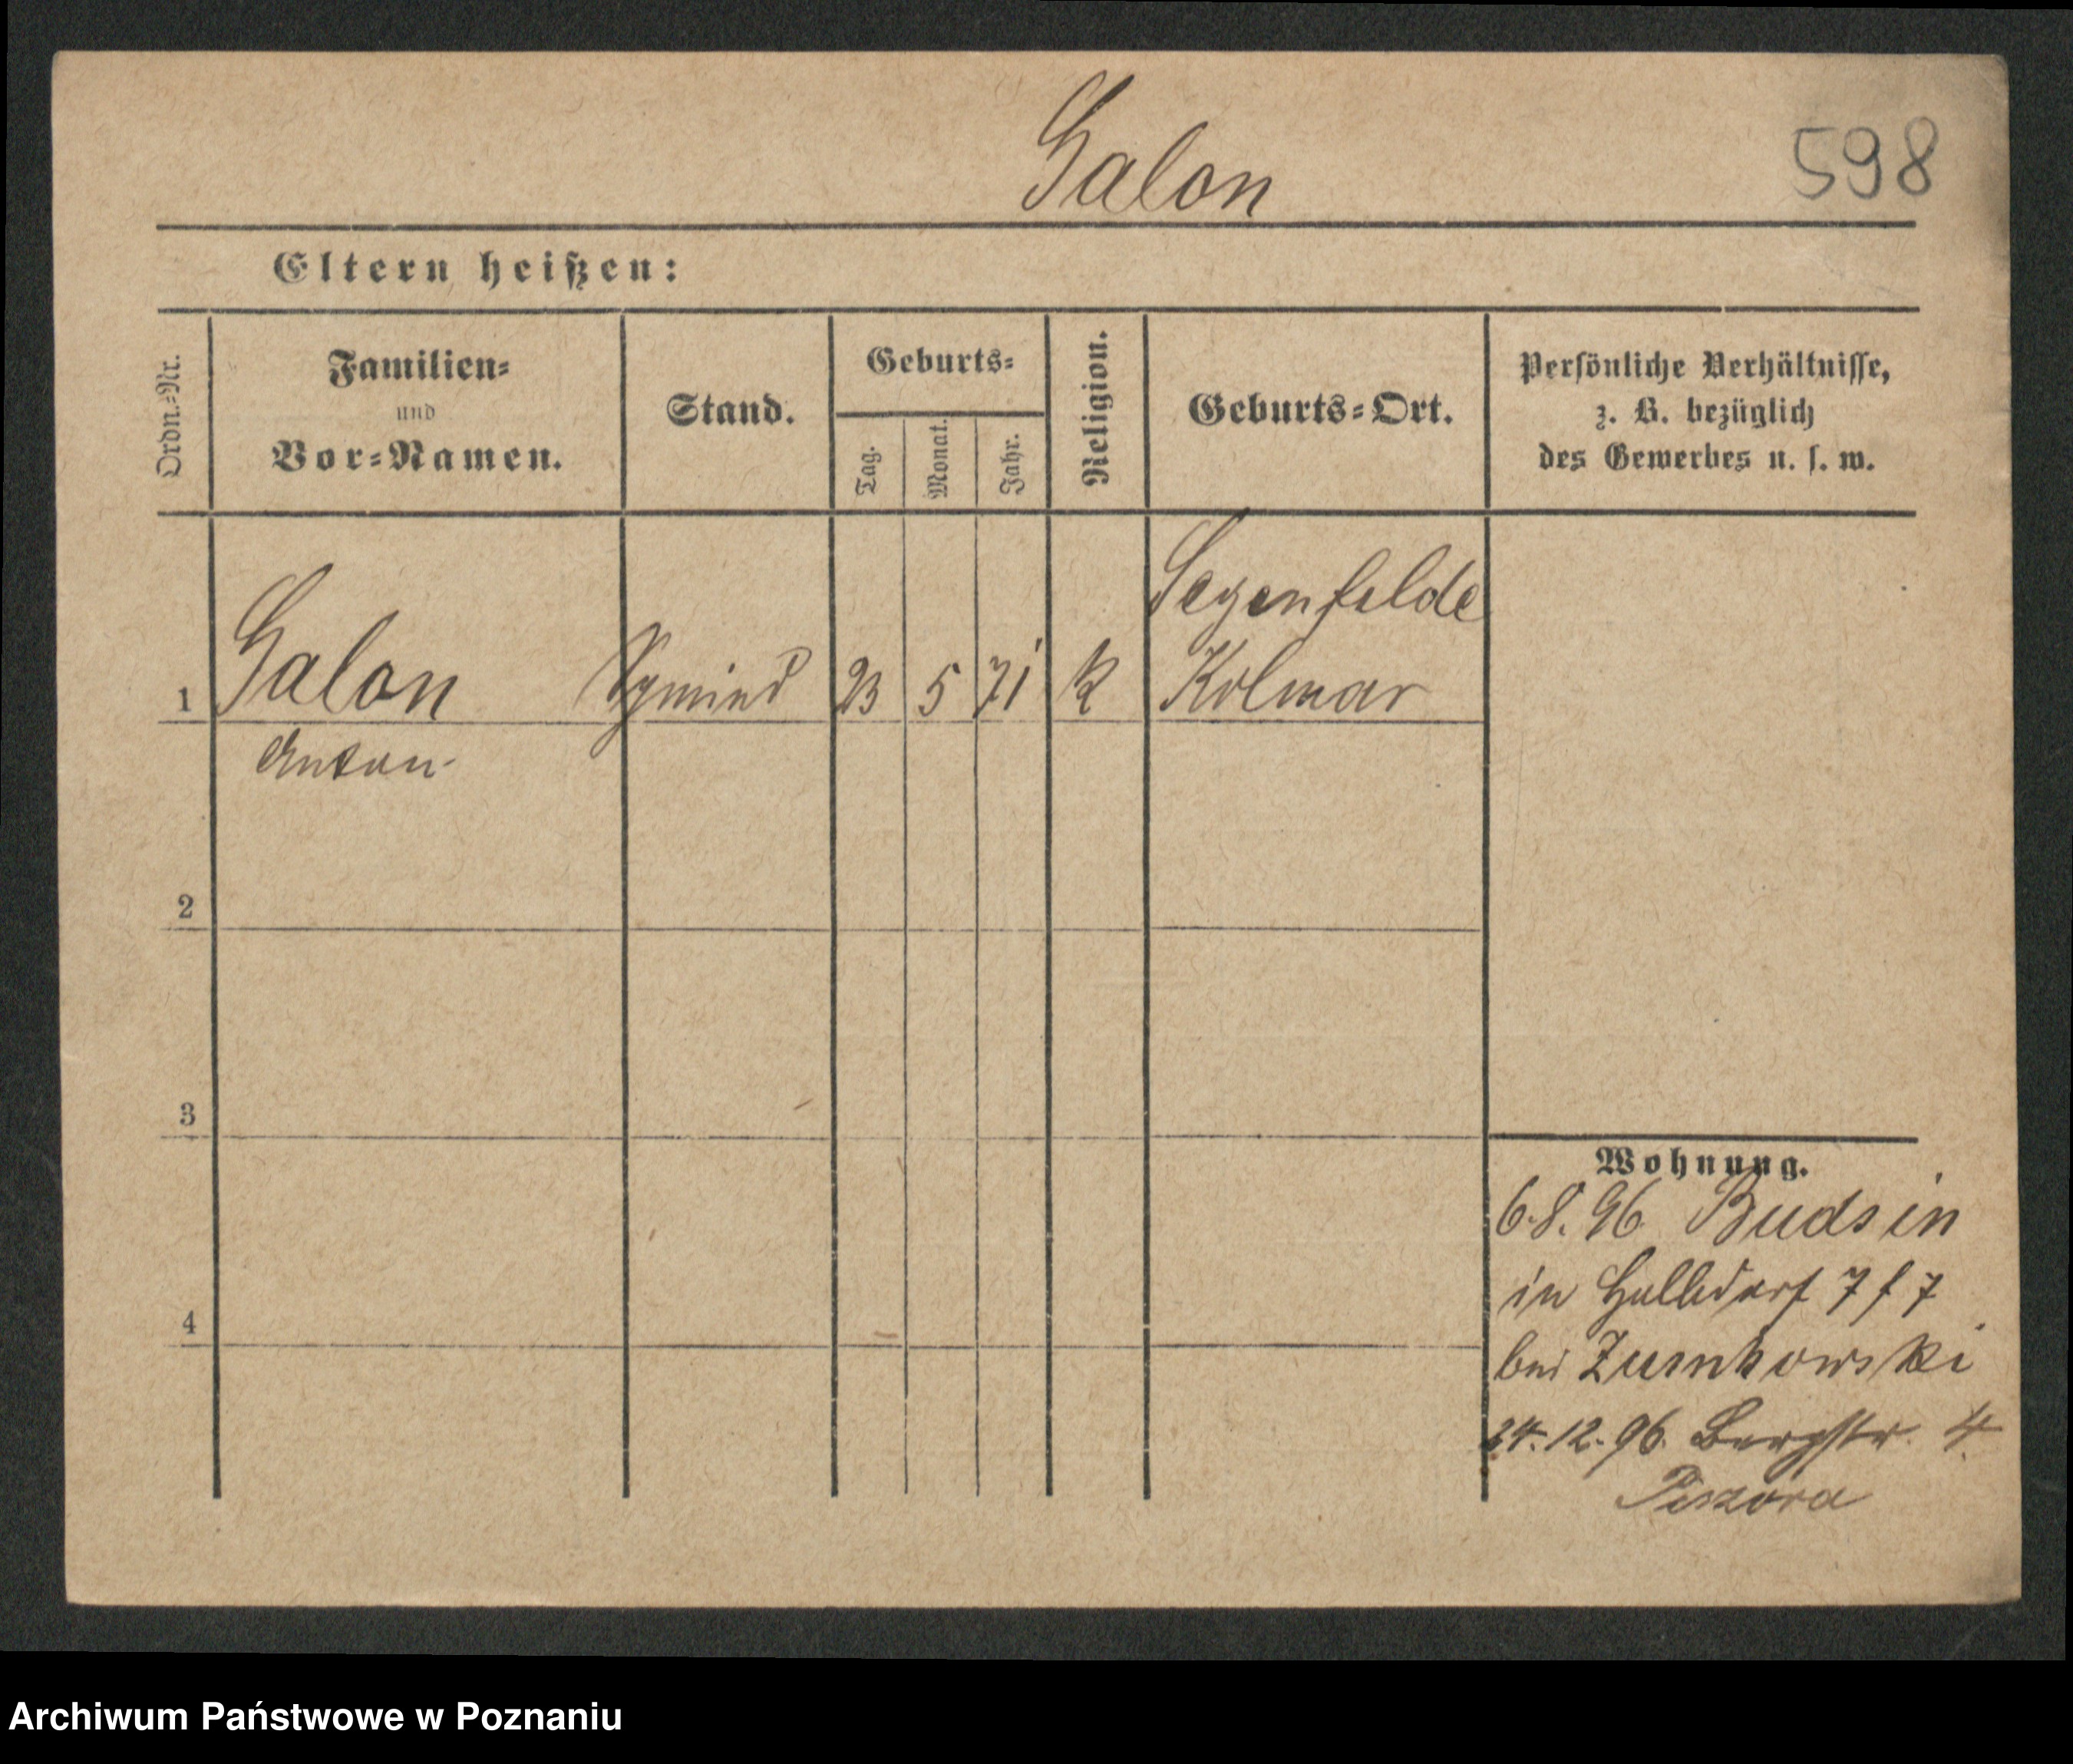 Galon
598
Eltern heißen:
Ordn.-Nr.
Familien-
und
Vor-Namen.
Stand.
Geburts-
Tag.
Monat.
Jahr.
Religion.
Geburts-Ort.
Persönliche Verhältnisse,
z. B. bezüglich
des Gewerbes u. s. w.
Segenfelde
1 Galon 23 5 71 K Kolmar
Anton
2
3
4
Wohnung.
6.8.96 Budsin
in
bei
24.12.96. Bergstr. 4
Archiwum Państwowe w Poznaniu